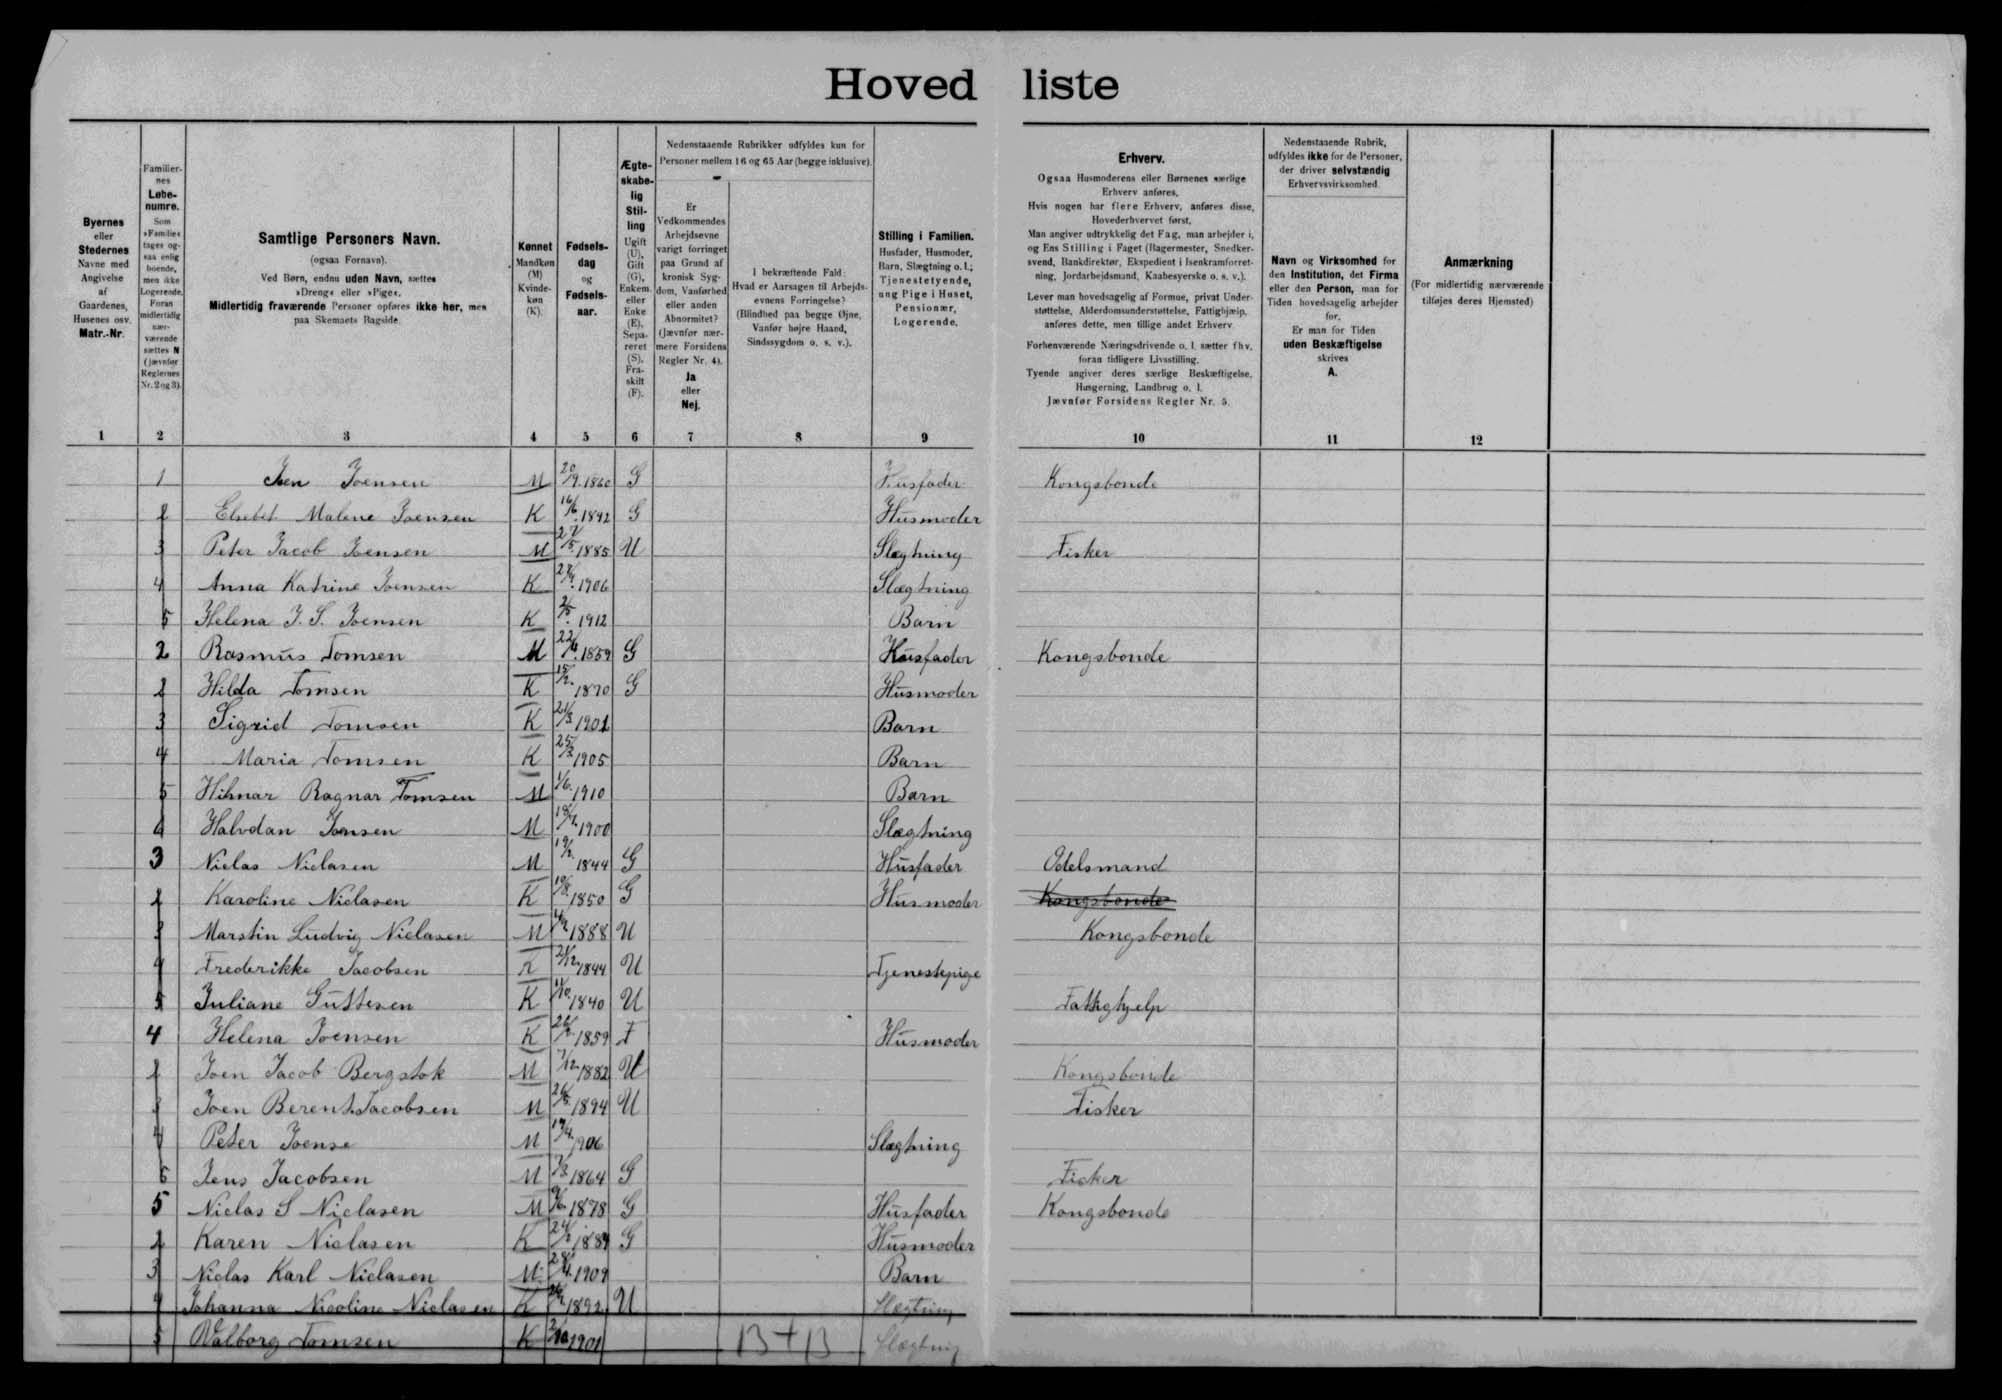 Hovedliste
Nedenstaaende Rubrikker udfyldes kun for Personer mellem 16 og 65 Aar (begge inklusive).
Nedenstaaende Rubrik, udfyldes ikke for de Personer, der driver selvstændig Erhvervsvirksomhed.
Byernes eller Stedernes Navne med Angivelse af Gaardenes, Husenes osv. Matr.-Nr.
Familiernes Løbenumre. Som »Familie« tages ogsaa enlig boende, men ikke Logerende. Foran midlertidig nærværende sættes N (jævnfør Reglernes Nr. 2 og 3).
Samtlige Personers Navn. (ogsaa Fornavn). Ved Børn, endnu uden Navn, sættes »Dreng« eller »Pige«. Midlertidig fraværende Personer opføres ikke her, men paa Skemaets Bagside.
Kønnet Mandkøn (M) Kvindekøn (K).
Fødselsdag og Fødselsaar.
Ægteskabelig Stilling Ugift (U), Gift (G), Enkem. eller Enke (E), Separeret (S), Fraskilt (F).
Er Vedkommendes Arbejdsevne varigt forringet paa Grund af kronisk Sygdom, Vanførhed eller anden Abnormitet? (Jævnfør nærmere Forsidens Regler Nr. 4). Ja eller Nej.
I bekræftende Fald: Hvad er Aarsagen til Arbejdsevnens Forringelse? (Blindhed paa begge Øjne, Vanfør højre Haand, Sindssygdom o. s. v.).
Stilling i Familien. Husfader, Husmoder, Barn, Slægtning o. l.; Tjenestetyende, ung Pige i Huset, Pensionær, Logerende.
Erhverv.
Ogsaa Husmoderens eller Børnenes særlige Erhverv anføres.
Hvis nogen har flere Erhverv, anføres disse, Hovederhvervet først.
Man angiver udtrykkelig det Fag, man arbejder i, og Ens Stilling i Faget (Bagermester, Snedkersvend, Bankdirektør, Ekspedient i Isenkramforretning, Jordarbejdsmand, Kaabesyerske o. s. v.).
Lever man hovedsagelig af Formue, privat Understøttelse, Alderdomsunderstøttelse, Fattighjælp, anføres dette, men tillige andet Erhverv.
Forhenværende Næringsdrivende o. l. sætter fhv. foran tidligere Livsstilling.
Tyende angiver deres særlige Beskæftigelse, Husgerning, Landbrug o. l.
Jævnfør Forsidens Regler Nr. 5.
Navn og Virksomhed for den Institution, det Firma eller den Person, man for Tiden hovedsagelig arbejder for.
Er man for Tiden uden Beskæftigelse skrives A.
Anmærkning (For midlertidig nærværende tilføjes deres Hjemsted)
1 2 3 4 5 6 7 8 9 10 11 12
1 Joen Joensen M 20/9 1860 G Husfader Kongsbonde
2 Elsebet Malene Joensen K 16/6 1892 G Husmoder
3 Peter Jacob Joensen M 1885 U Slægtning Fisker
4 Anna Katrine Joensen K 1906 Slægtning
5 Helena J. S. Joensen K 1912 Barn
2 Rasmus Tomsen M 1859 G Husfader Kongsbonde
2 Hilda Tomsen K 1870 G Husmoder
3 Sigrid Tomsen K 21/3 1901 Barn
4 Maria Tomsen K 1905 Barn
5 Hilmar Ragnar Tomsen M 1/6 1910 Barn
6 Halvdan Joensen M 1900 Slægtning
3 Niclas Niclasen M 1844 G Husfader Odelsmand
2 Karoline Niclasen K 1850 G Husmoder Kongsbonde
3 Marstin Ludvig Niclasen M 1888 U Kongsbonde
4 Frederikke Jacobsen K 21/12 1844 U Tjenestepige
5 Juliane Guttesen K 1840 U Fattighjelp
4 Helena Joensen K 1859 F Husmoder
2 Joen Jacob Bergstok M 7/12 1882 U Kongsbonde
3 Joen Berent Jacobsen M 1894 U Fisker
4 Peter Joense M 1906 Slægtning
5 Jens Jacobsen M 1864 G Fisker
5 Niclas S Niclasen M 1878 G Husfader Kongsbonde
2 Karen Niclasen K 1889 G Husmoder
3 Niclas Karl Niclasen M 1909 Barn
4 Johanna Nicoline Niclasen K 1892 U Slægtning
5 Valborg Tomsen K 1901 13+13 Slægtning